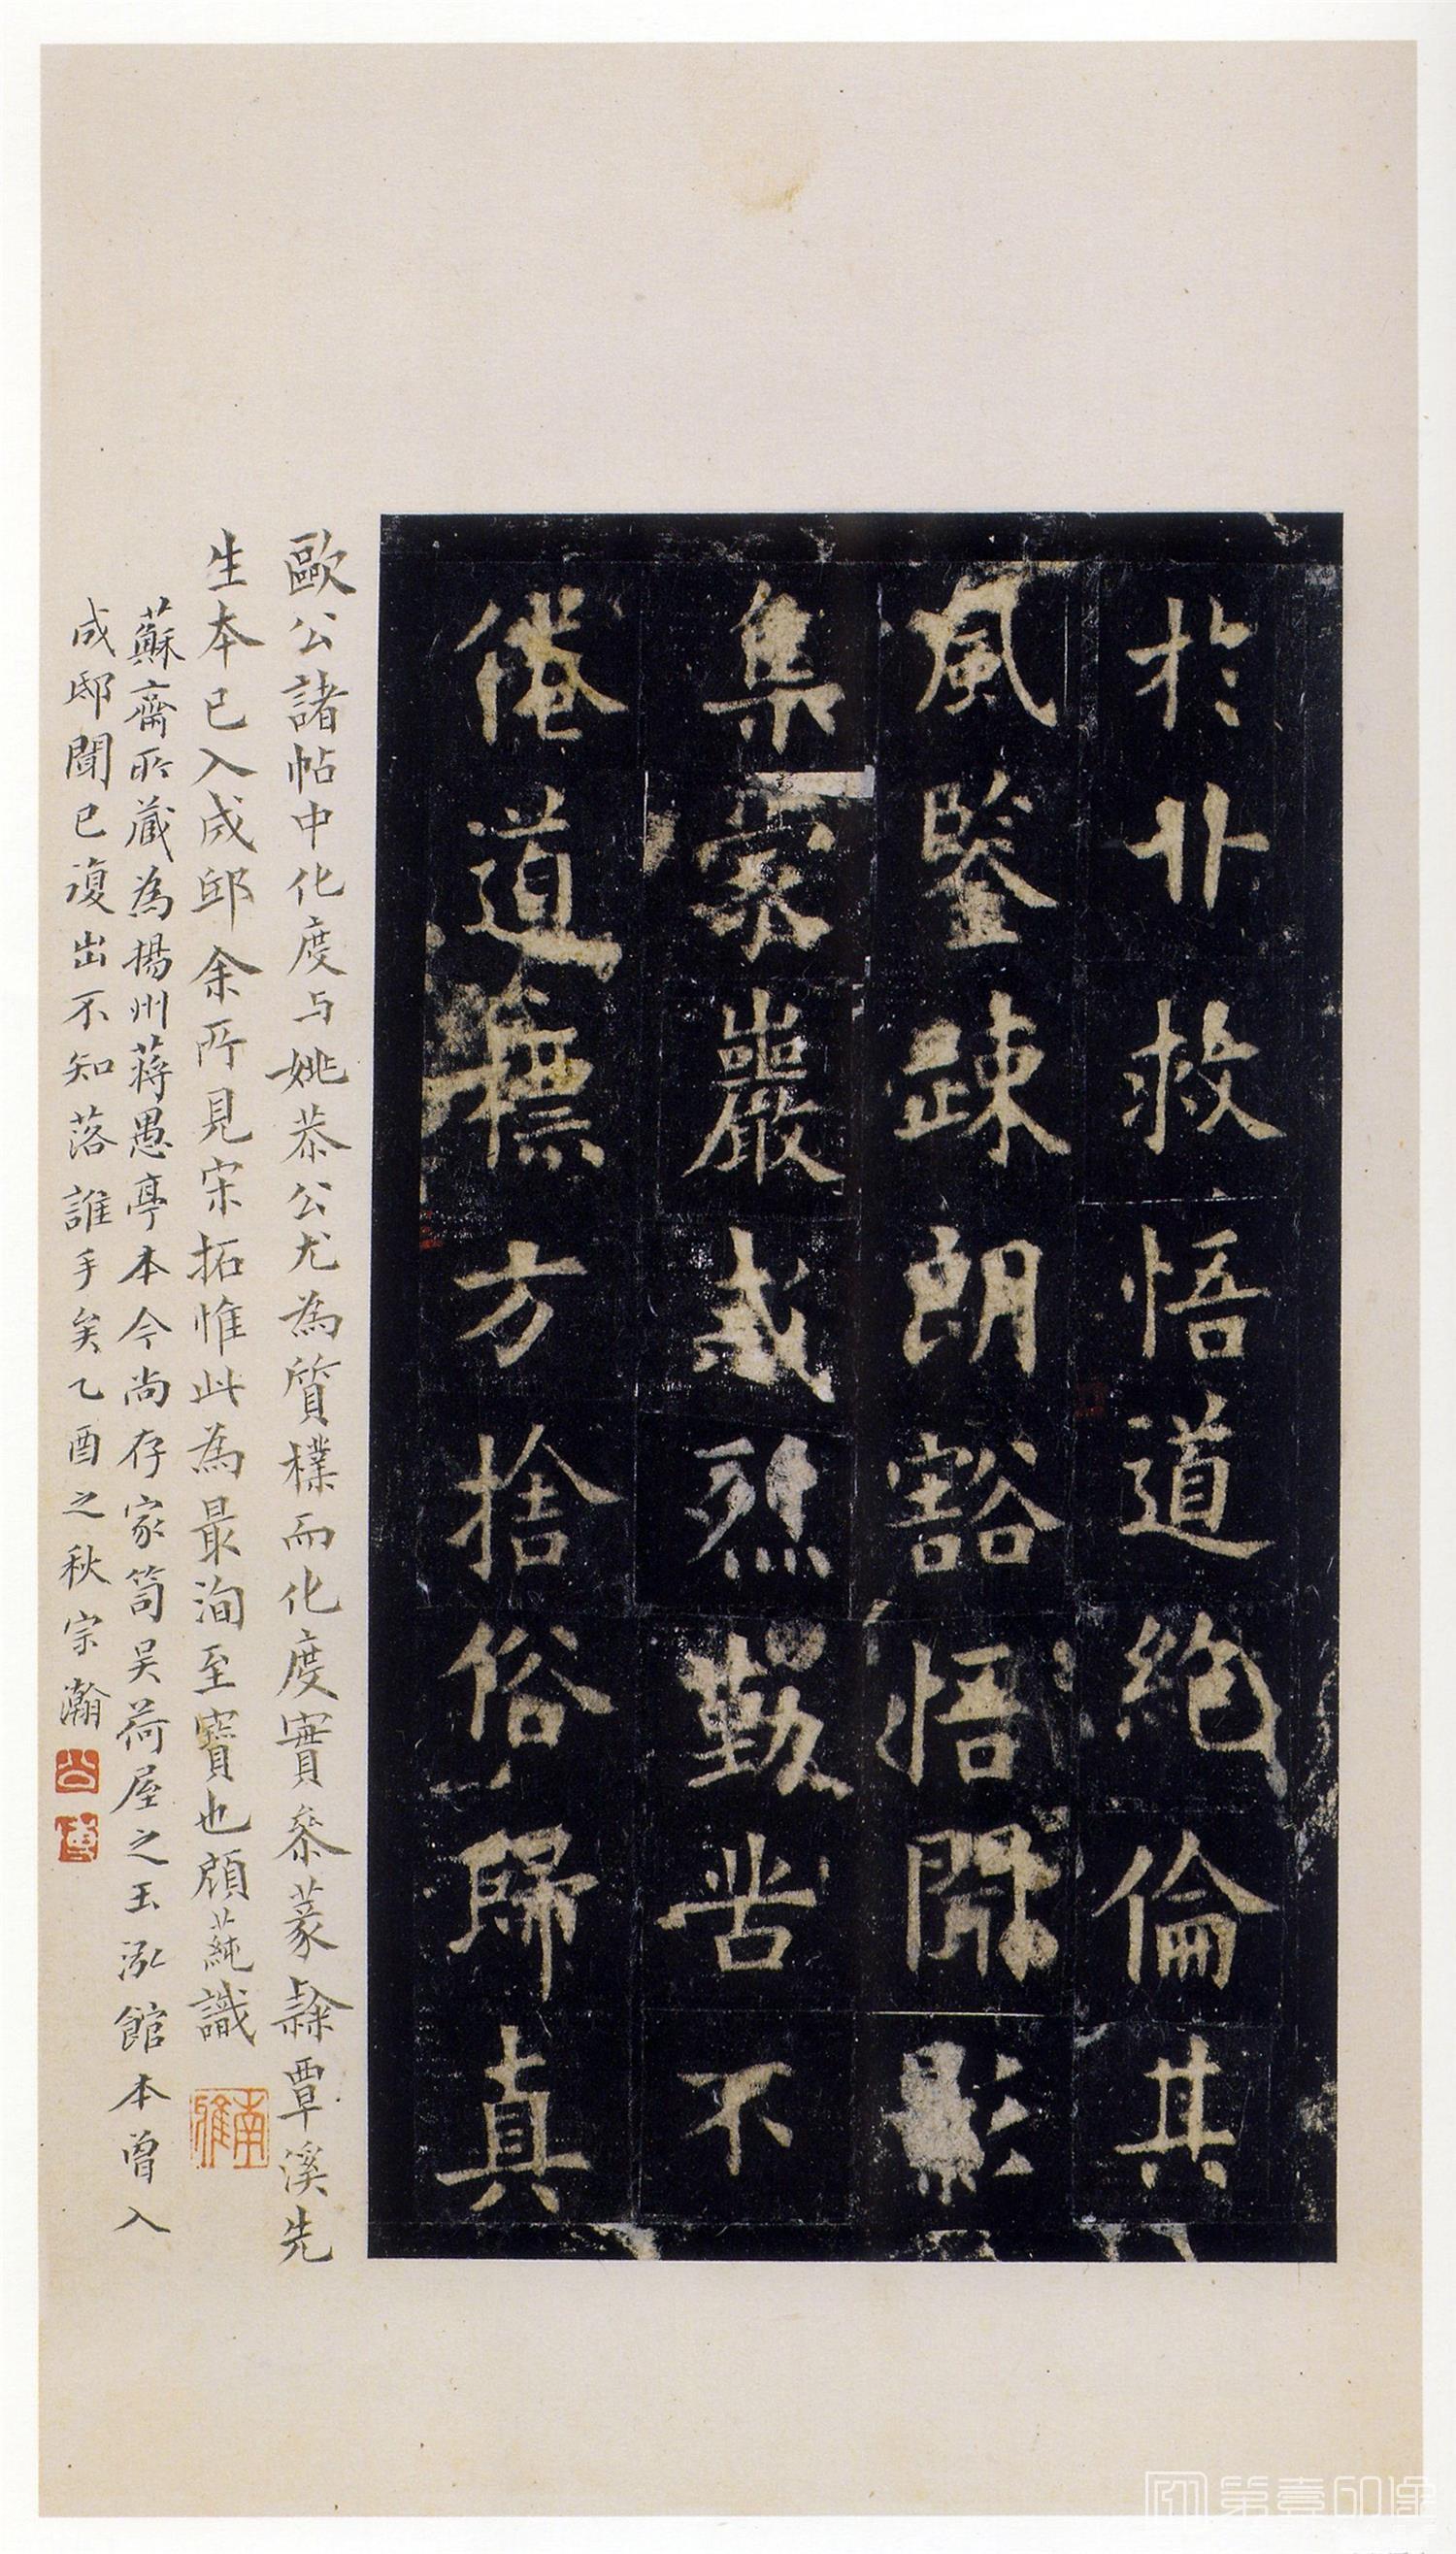 於廿救悟道絶倫其
風鑒疎朗豁悟開
集家嚴戒烈勤苦不
倦道標方捨俗歸真
歐公諸帖中化度与姚恭公尤為質樸而化度實叅蒃隸覃溪先
生本已入成邸余所見宋拓惟此為最洵至寶也顧蒓識
南雅
蘇齋所藏為揚州蔣愚亭本今尚存家笥吴荷屋之玉泓館本曾入
成邸聞已復出不知落誰手矣乙酉之秋宗瀚
公博
第壹印象